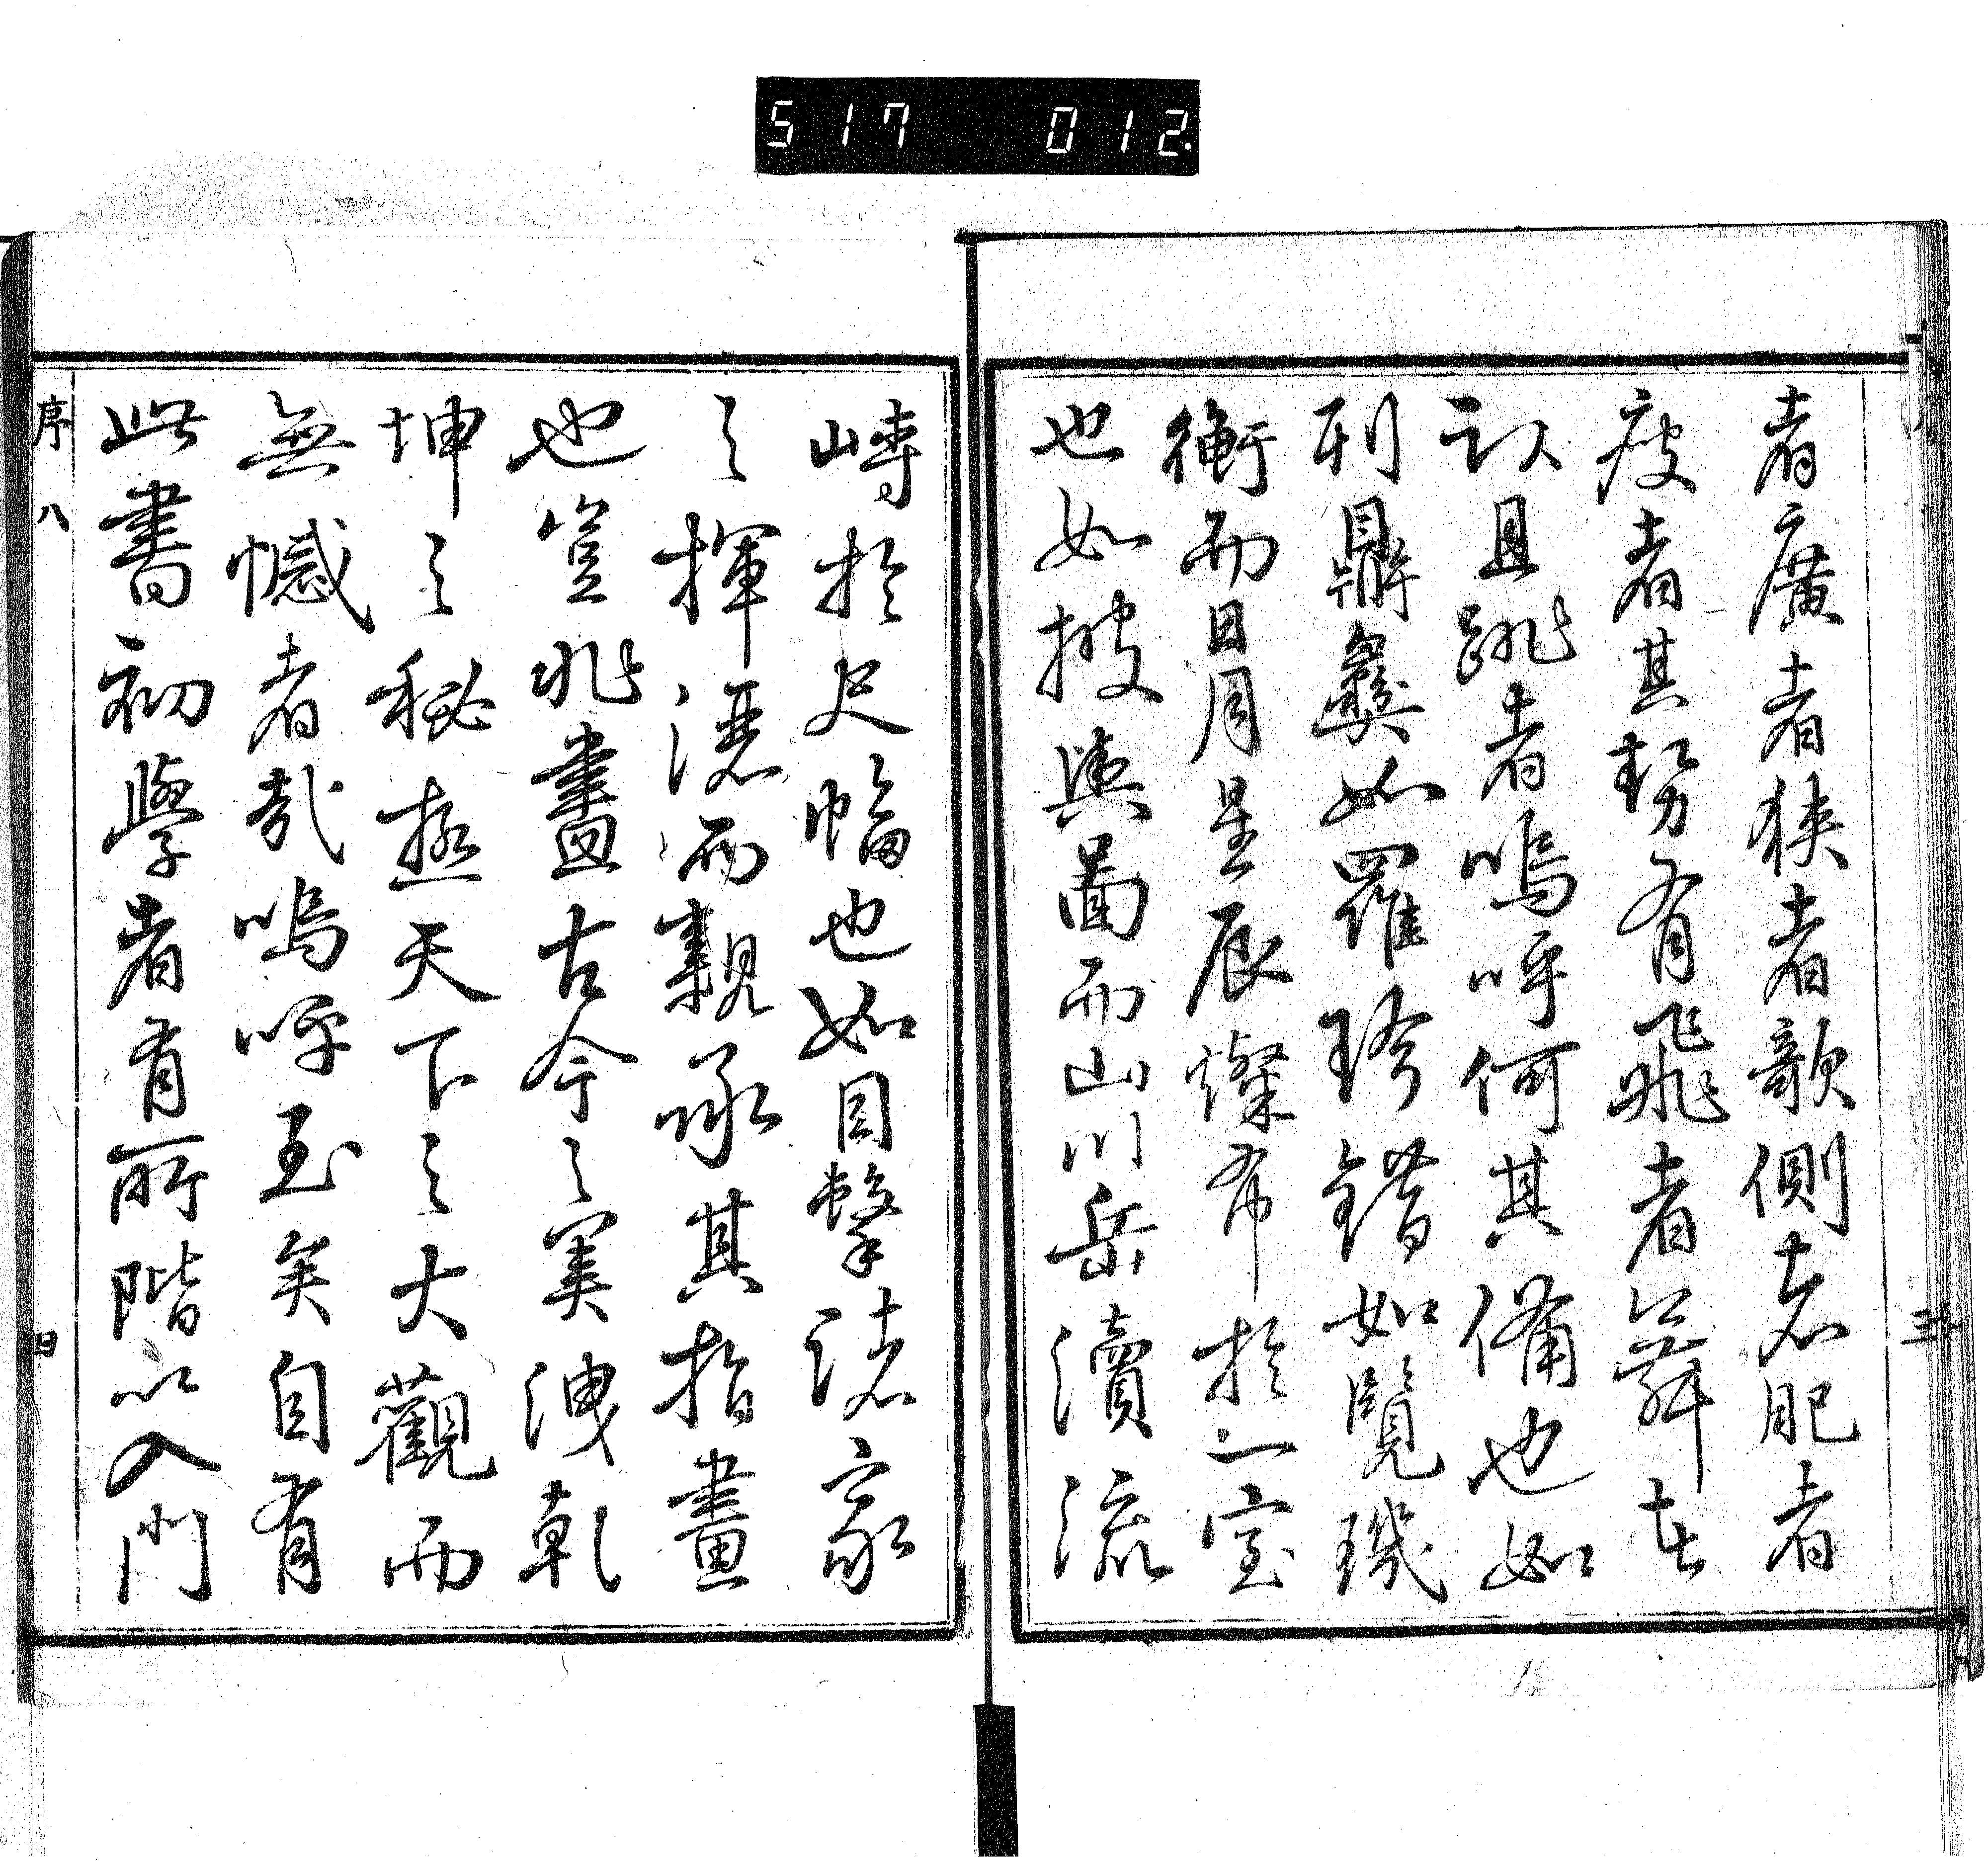 517 012.
者廣者狹者欹側者肥者
瘦者其勢有飛者舞者
趺且跳者嗚呼何其備也如
列鼎彝如羅珍錯如覽璣
衡而日月星辰燦布於一室
也如披輿圖而山川岳瀆流
峙於尺幅也如目擊諸家
之揮灑而親承其指畫
也豈非盡古今之奧洩乾
坤之秘極天下之大觀而
無憾者哉嗚呼至矣自有
此書初學者有所階以入門
序 八
三
四